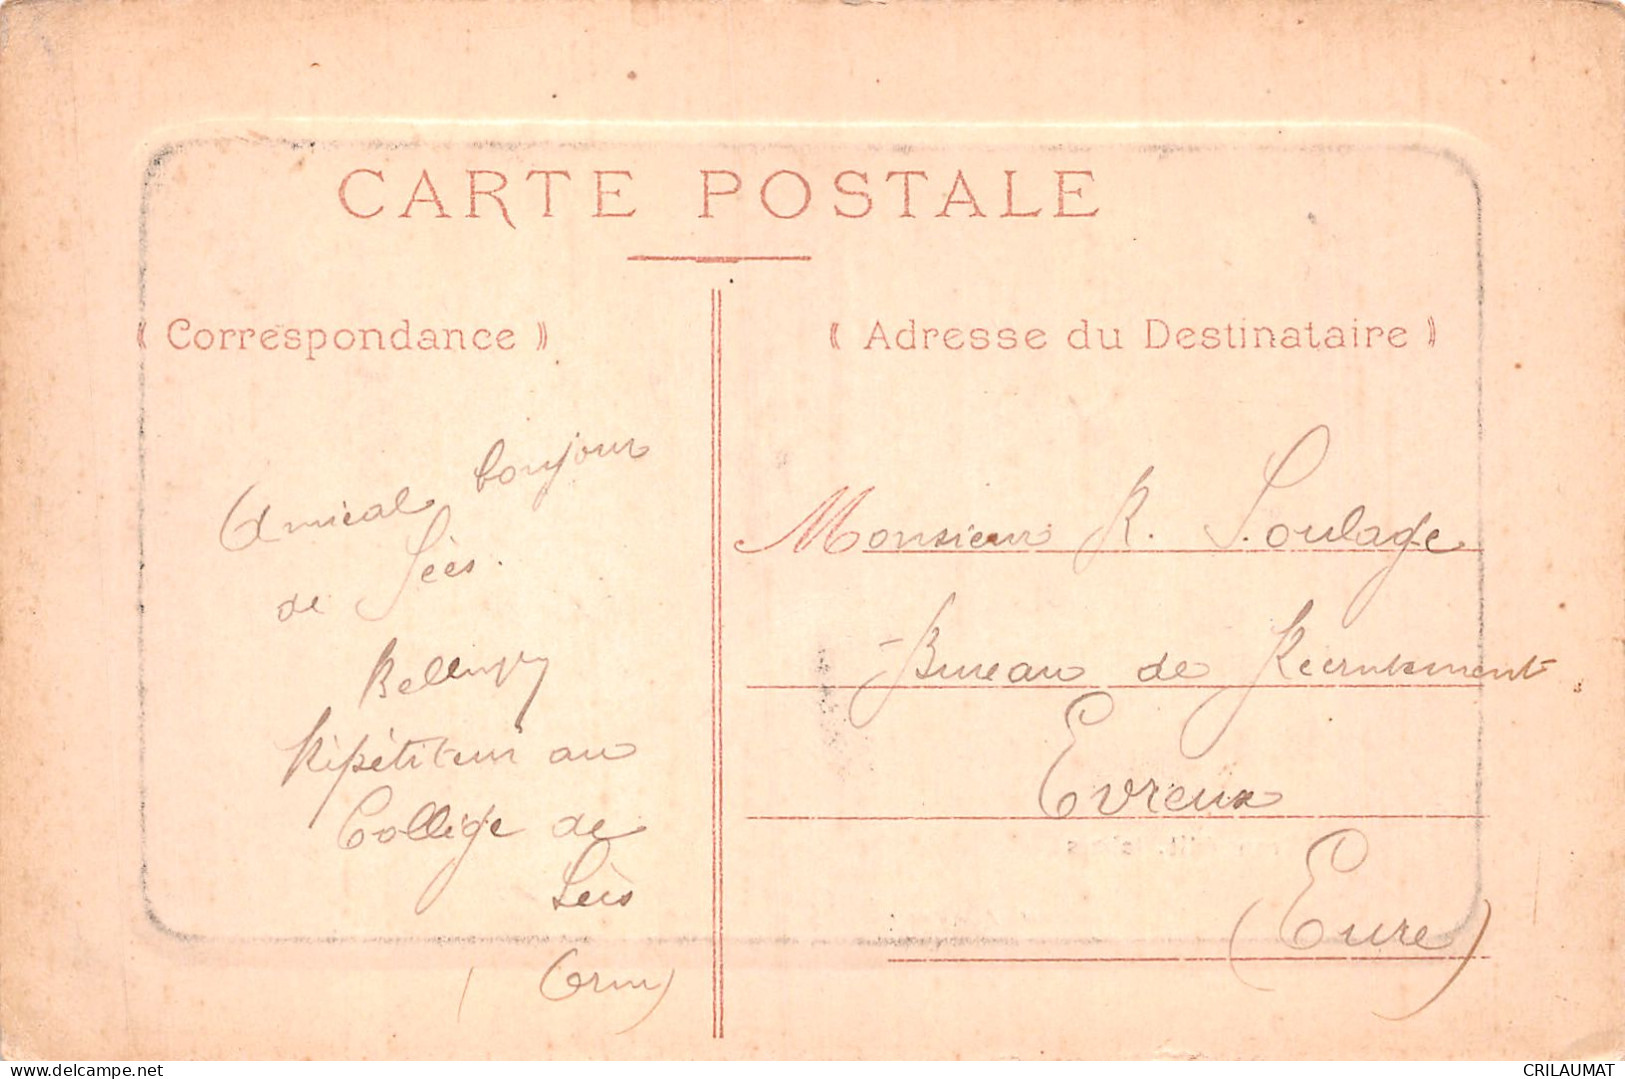 CARTE POSTALE
« Correspondance »
Amical bonjour
de Sées.
Bellenger
Répétiteur au
Collège de
Sées
(Orne)
« Adresse du Destinataire »
Monsieur R. Soulage
Bureau de Recrutement
Evreux
(Eure)
delcampe.net
CRILAUMAT